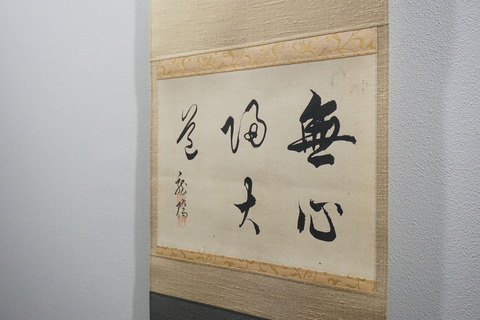 無心
帰大
道